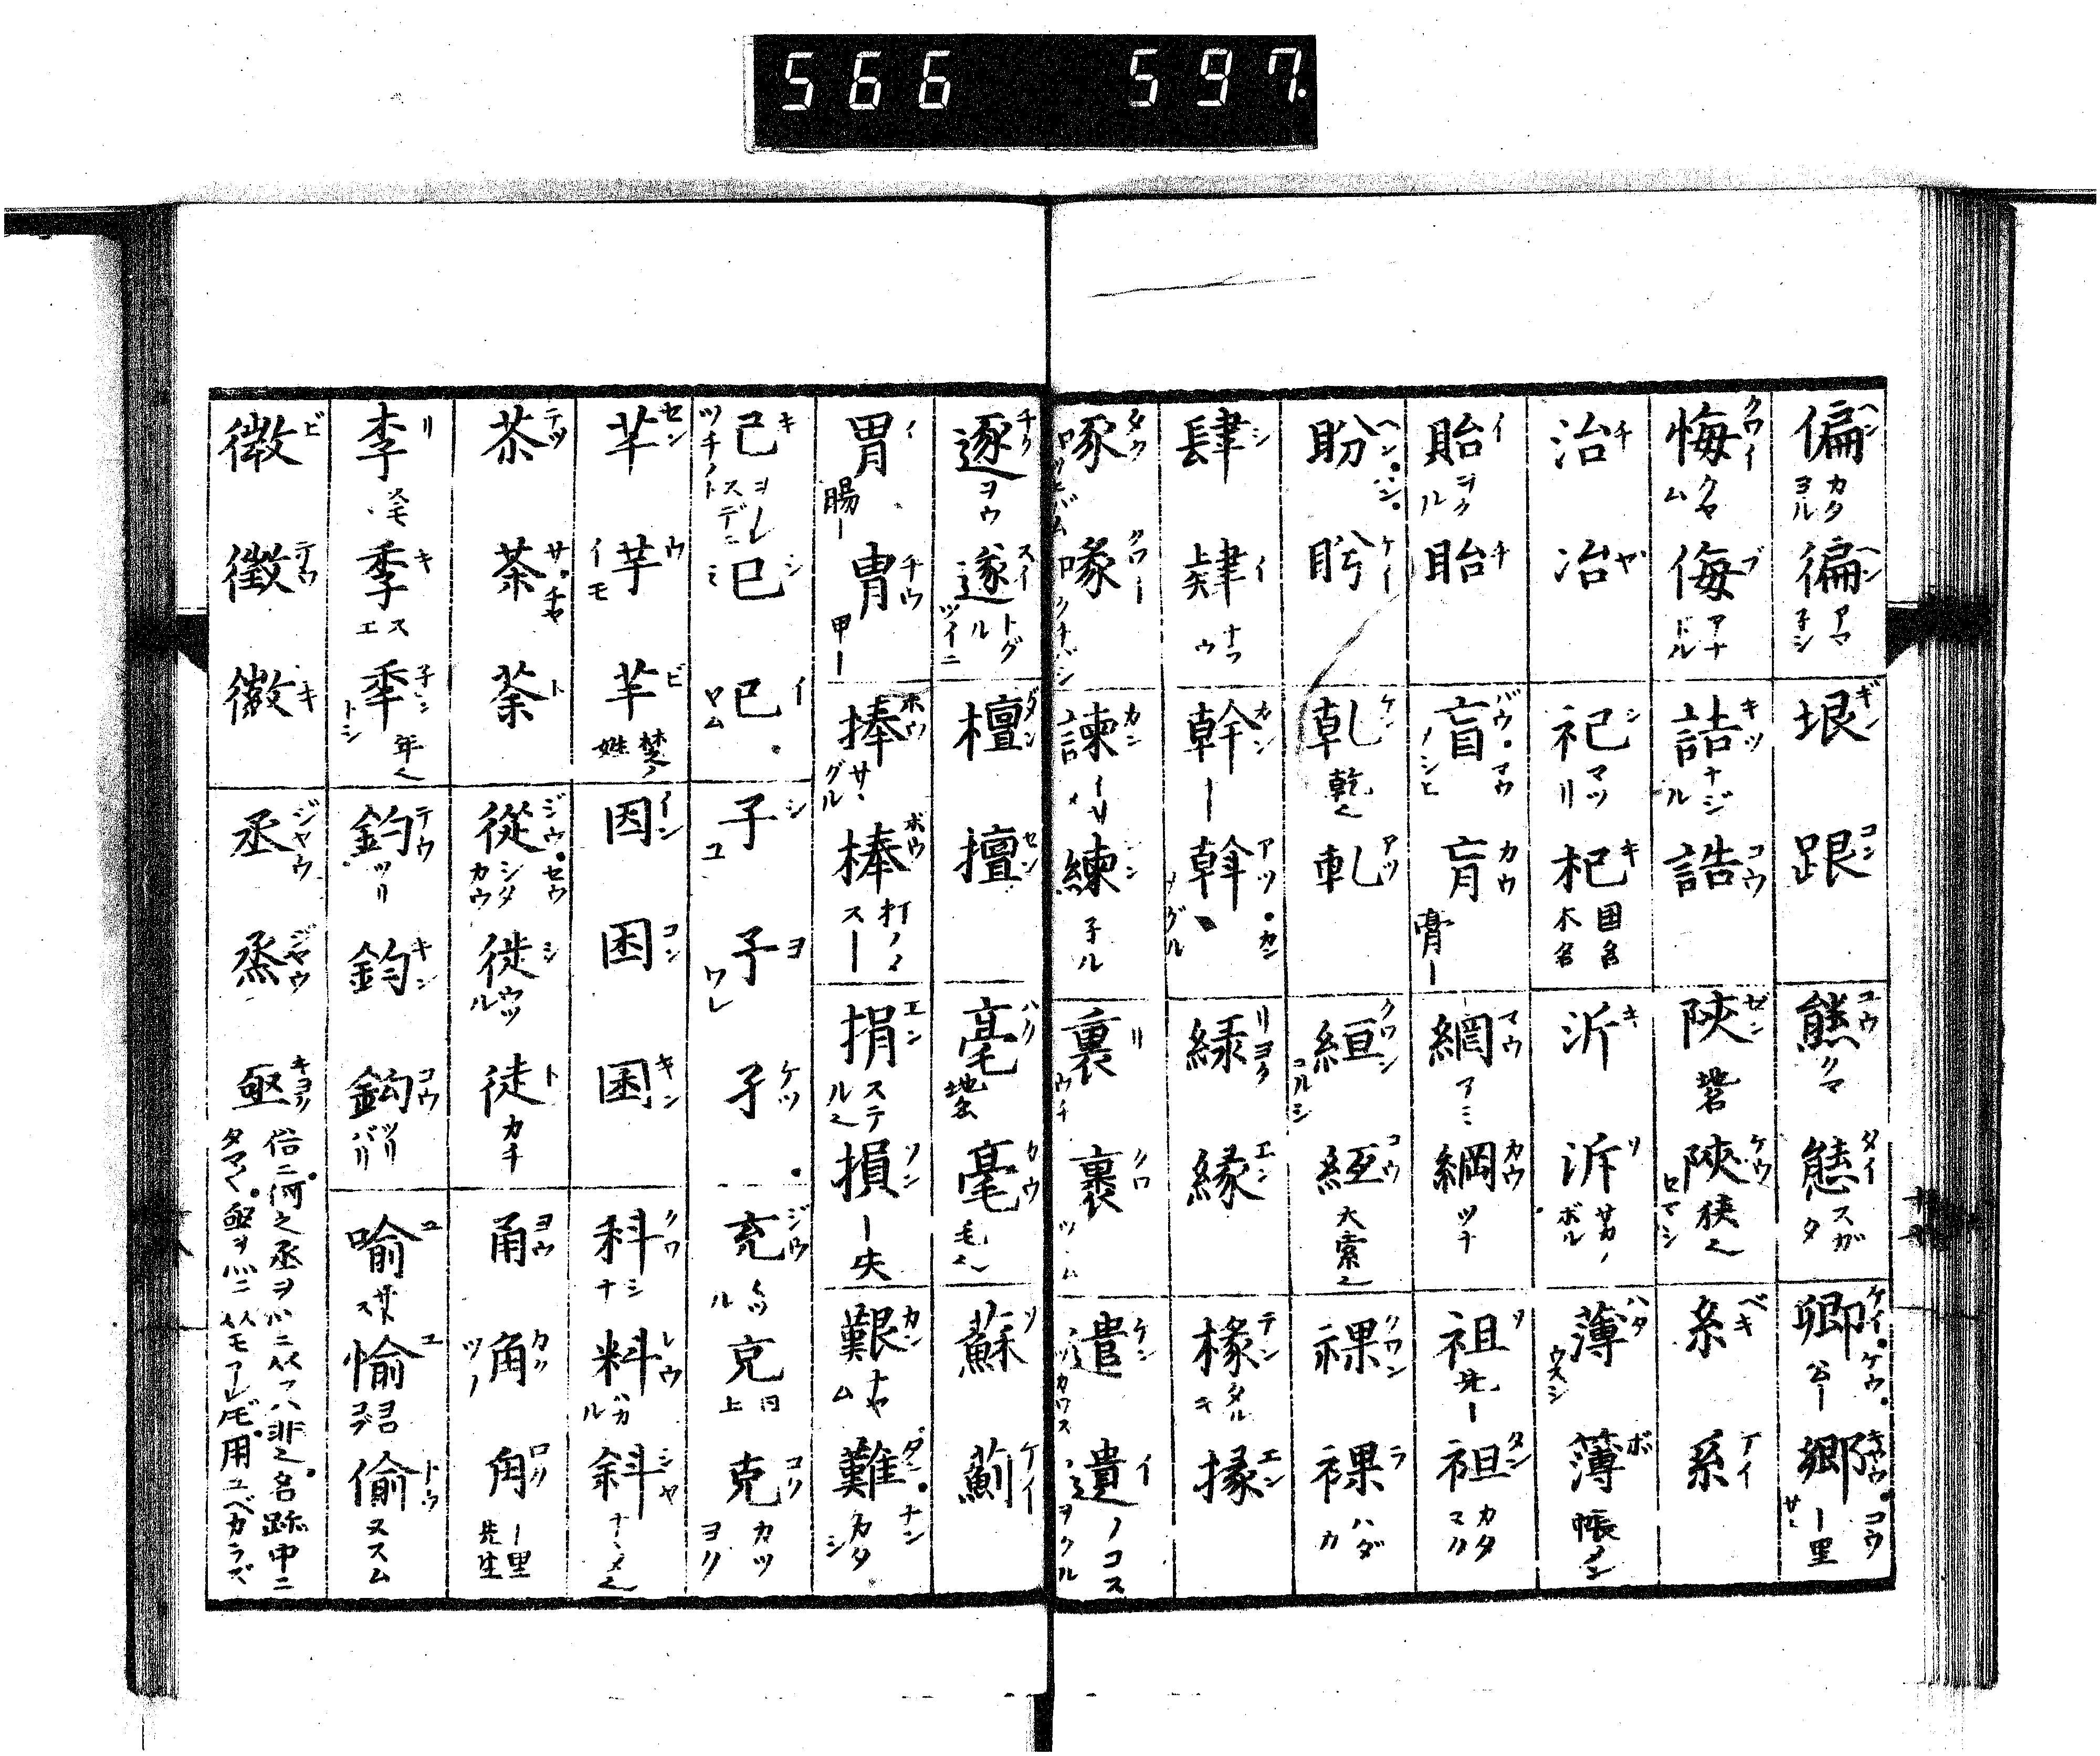 566 597.
偏 ヘン カタヨル 徧 ヘン アマ子シ 垠 ギン 跟 コン 熊 ユウ クマ 態 タイ スガタ 卿 ケイ・ケウ 公ー 郷 キヤウ・コウ ー里 サト
悔 クワイ クヤム 侮 ブ アナドル 詰 キツ ナジル 誥 コウ 陝 セン 陜 ケウ 狭 セマシ 糸 ベキ 系 ケイ
治 チ 冶 ヤ 祀 シ マツリ 杞 キ 国名 木名 沂 キ 泝 ソ サカノボル 薄 ハク ウスシ 簿 ボ 帳
貽 イ ヲクル 眙 チ 盲 バウ・マウ メシヒ 肓 カウ 膏ー 網 マウ アミ 綱 カウ ツナ 祖 ソ 先ー 袒 タン カタヌク
盼 ヘン・ハン 盻 ケイ 乹 ケン 乾 軋 アツ 絙 クワン 縆 コウ 大索 祼 クワン 裸 ラ ハダカ
肆 シ 肄 イ ナラウ 幹 カン 斡 アツ・カン メグル 緑 リヨク 縁 エン 椽 テン タルキ 掾 エン
啄 タク ツイバム 喙 クワイ クチバシ 諫 カン イサメ 練 レン 子ル 裏 リ ウチ 裹 クワ ツヽム 遣 ケン ツカワス 遺 イ ノコス ヲクル
逐 チク ヲウ 遂 スイ トグル ツイニ 檀 ダン 擅 セン 亳 ハク 地名 毫 カウ 毛 蘇 ソ 薊 ケイ
胃 イ 腸ー 冑 チウ 甲ー 捧 ホウ サヽグル 棒 ボウ 打ノメスー 捐 エン ステル 損 ソン ー失 艱 カン ナヤム 難 ダン・ナン カタシ
己 キ ヲノレ ツチノト 巳 シ ミ スデニ 已 イ ヤム 子 シ 予 ヨ ワレ 孑 ケツ 充 ジウ 克 日上 克 コク カツ ヨク
芊 セン 芋 ウ イモ 芈 ビ 楚ノ姓 因 イン 困 コン 囷 キン 科 クワ シナ 料 レウ ハカル 斜 シヤ ナヽメ
苶 テツ 茶 サ・チヤ 荼 ト 從 ジウ・セウ シタカウ 徙 シ ウツル 徒 ト カチ 甬 ヨウ 角 カク ツノ 甪 ロク ー里先生
李 リ スモヽ 季 キ スエ 秊 子ン 年 トシ 釣 テウ ツリ 鈞 キン 鉤 コウ ツリバリ 喩 ユ サトス 愉 ユ ヨロコブ 偷 トウ ヌスム
微 ビ 徴 テウ 徽 キ 丞 ジヤウ 烝 ジヤウ 亟 キヨク 俗ニ何之丞ヲ灬ニ从フハ非之名跡中ニ
タマ〳〵亟ヲ灬ニ从モアレドモ用ユベカラズ